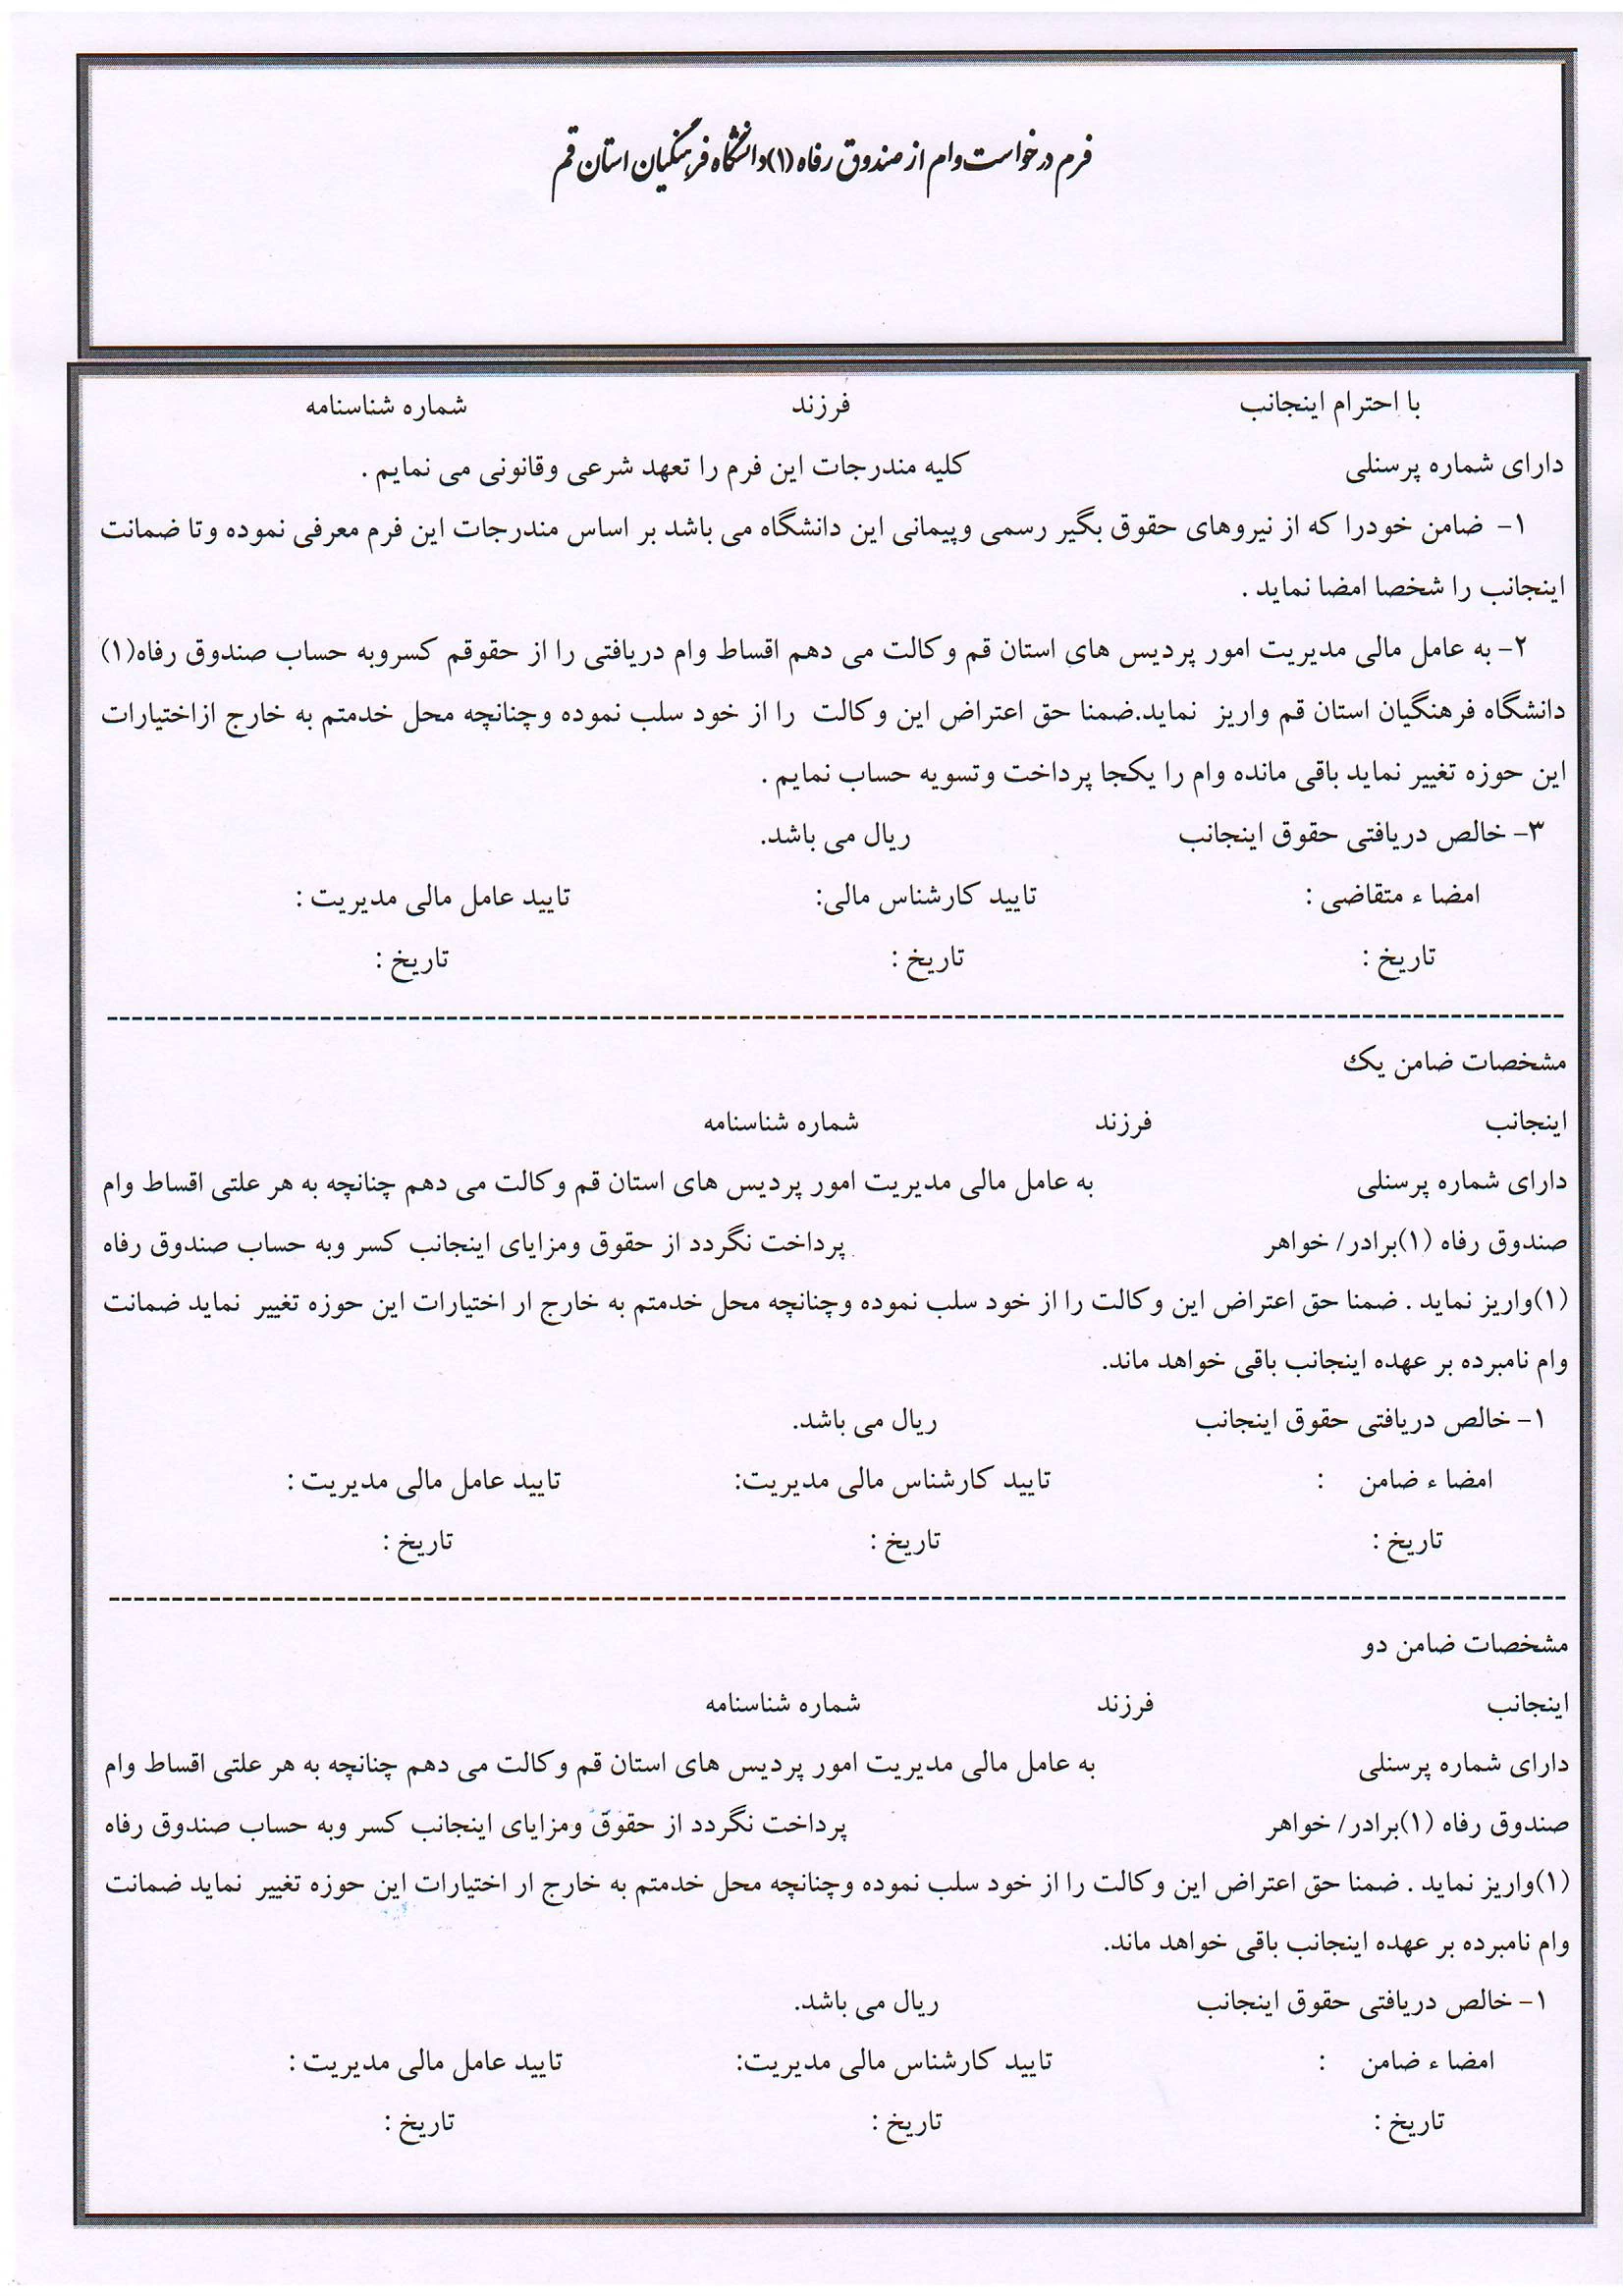 فرم درخواست وام از صندوق رفاه (۱) دانشگاه فرهنگیان استان قم
با احترام اینجانب فرزند شماره شناسنامه
دارای شماره پرسنلی کلیه مندرجات این فرم را تعهد شرعی وقانونی می نمایم .
۱- ضامن خودرا که از نیروهای حقوق بگیر رسمی وپیمانی این دانشگاه می باشد بر اساس مندرجات این فرم معرفی نموده وتا ضمانت
اینجانب را شخصا امضا نماید .
۲- به عامل مالی مدیریت امور پردیس های استان قم وکالت می دهم اقساط وام دریافتی را از حقوقم کسروبه حساب صندوق رفاه(۱)
دانشگاه فرهنگیان استان قم واریز نماید.ضمنا حق اعتراض این وکالت را از خود سلب نموده وچنانچه محل خدمتم به خارج ازاختیارات
این حوزه تغییر نماید باقی مانده وام را یکجا پرداخت وتسویه حساب نمایم .
۳- خالص دریافتی حقوق اینجانب ریال می باشد.
امضا ء متقاضی : تایید کارشناس مالی: تایید عامل مالی مدیریت :
تاریخ : تاریخ : تاریخ :
مشخصات ضامن یک
اینجانب فرزند شماره شناسنامه
دارای شماره پرسنلی به عامل مالی مدیریت امور پردیس های استان قم وکالت می دهم چنانچه به هر علتی اقساط وام
صندوق رفاه (۱)برادر/ خواهر پرداخت نگردد از حقوق ومزایای اینجانب کسر وبه حساب صندوق رفاه
(۱)واریز نماید . ضمنا حق اعتراض این وکالت را از خود سلب نموده وچنانچه محل خدمتم به خارج ار اختیارات این حوزه تغییر نماید ضمانت
وام نامبرده بر عهده اینجانب باقی خواهد ماند.
۱- خالص دریافتی حقوق اینجانب ریال می باشد.
امضا ء ضامن : تایید کارشناس مالی مدیریت: تایید عامل مالی مدیریت :
تاریخ : تاریخ : تاریخ :
مشخصات ضامن دو
اینجانب فرزند شماره شناسنامه
دارای شماره پرسنلی به عامل مالی مدیریت امور پردیس های استان قم وکالت می دهم چنانچه به هر علتی اقساط وام
صندوق رفاه (۱)برادر/ خواهر پرداخت نگردد از حقوق ومزایای اینجانب کسر وبه حساب صندوق رفاه
(۱)واریز نماید . ضمنا حق اعتراض این وکالت را از خود سلب نموده وچنانچه محل خدمتم به خارج ار اختیارات این حوزه تغییر نماید ضمانت
وام نامبرده بر عهده اینجانب باقی خواهد ماند.
۱- خالص دریافتی حقوق اینجانب ریال می باشد.
امضا ء ضامن : تایید کارشناس مالی مدیریت: تایید عامل مالی مدیریت :
تاریخ : تاریخ : تاریخ :